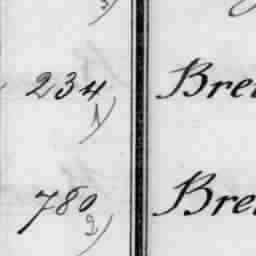 234 Bre
1)
780 Bre
2)